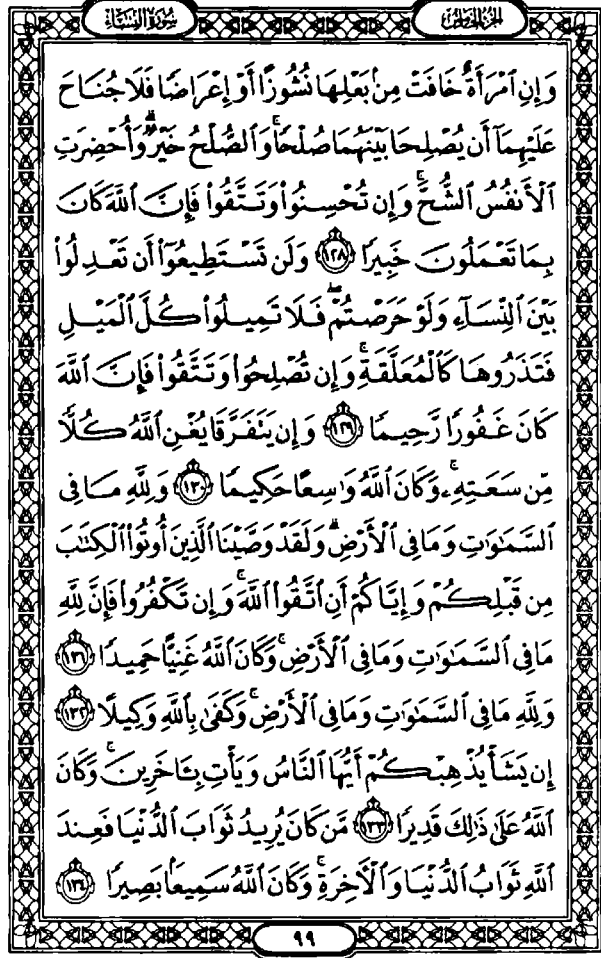 سُورَةُ النِّسَاءِ
الجُزْءُ الخَامِسُ
وَإِنِ ٱمْرَأَةٌ خَافَتْ مِنۢ بَعْلِهَا نُشُوزًا أَوْ إِعْرَاضًا فَلَا جُنَاحَ
عَلَيْهِمَآ أَن يُصْلِحَا بَيْنَهُمَا صُلْحًاۚ وَٱلصُّلْحُ خَيْرٌۗ وَأُحْضِرَتِ
ٱلْأَنفُسُ ٱلشُّحَّۚ وَإِن تُحْسِنُوا۟ وَتَتَّقُوا۟ فَإِنَّ ٱللَّهَ كَانَ
بِمَا تَعْمَلُونَ خَبِيرًا ١٢٨ وَلَن تَسْتَطِيعُوٓا۟ أَن تَعْدِلُوا۟
بَيْنَ ٱلنِّسَآءِ وَلَوْ حَرَصْتُمْۖ فَلَا تَمِيلُوا۟ كُلَّ ٱلْمَيْلِ
فَتَذَرُوهَا كَٱلْمُعَلَّقَةِۚ وَإِن تُصْلِحُوا۟ وَتَتَّقُوا۟ فَإِنَّ ٱللَّهَ
كَانَ غَفُورًا رَّحِيمًا ١٢٩ وَإِن يَتَفَرَّقَا يُغْنِ ٱللَّهُ كُلًّا
مِّن سَعَتِهِۦۚ وَكَانَ ٱللَّهُ وَٰسِعًا حَكِيمًا ١٣٠ وَلِلَّهِ مَا فِى
ٱلسَّمَٰوَٰتِ وَمَا فِى ٱلْأَرْضِۗ وَلَقَدْ وَصَّيْنَا ٱلَّذِينَ أُوتُوا۟ ٱلْكِتَٰبَ
مِن قَبْلِكُمْ وَإِيَّاكُمْ أَنِ ٱتَّقُوا۟ ٱللَّهَۚ وَإِن تَكْفُرُوا۟ فَإِنَّ لِلَّهِ
مَا فِى ٱلسَّمَٰوَٰتِ وَمَا فِى ٱلْأَرْضِۚ وَكَانَ ٱللَّهُ غَنِيًّا حَمِيدًا ١٣١
وَلِلَّهِ مَا فِى ٱلسَّمَٰوَٰتِ وَمَا فِى ٱلْأَرْضِۚ وَكَفَىٰ بِٱللَّهِ وَكِيلًا ١٣٢
إِن يَشَأْ يُذْهِبْكُمْ أَيُّهَا ٱلنَّاسُ وَيَأْتِ بِـَٔاخَرِينَۚ وَكَانَ
ٱللَّهُ عَلَىٰ ذَٰلِكَ قَدِيرًا ١٣٣ مَّن كَانَ يُرِيدُ ثَوَابَ ٱلدُّنْيَا فَعِندَ
ٱللَّهِ ثَوَابُ ٱلدُّنْيَا وَٱلْـَٔاخِرَةِۚ وَكَانَ ٱللَّهُ سَمِيعًۢا بَصِيرًا ١٣٤
٩٩